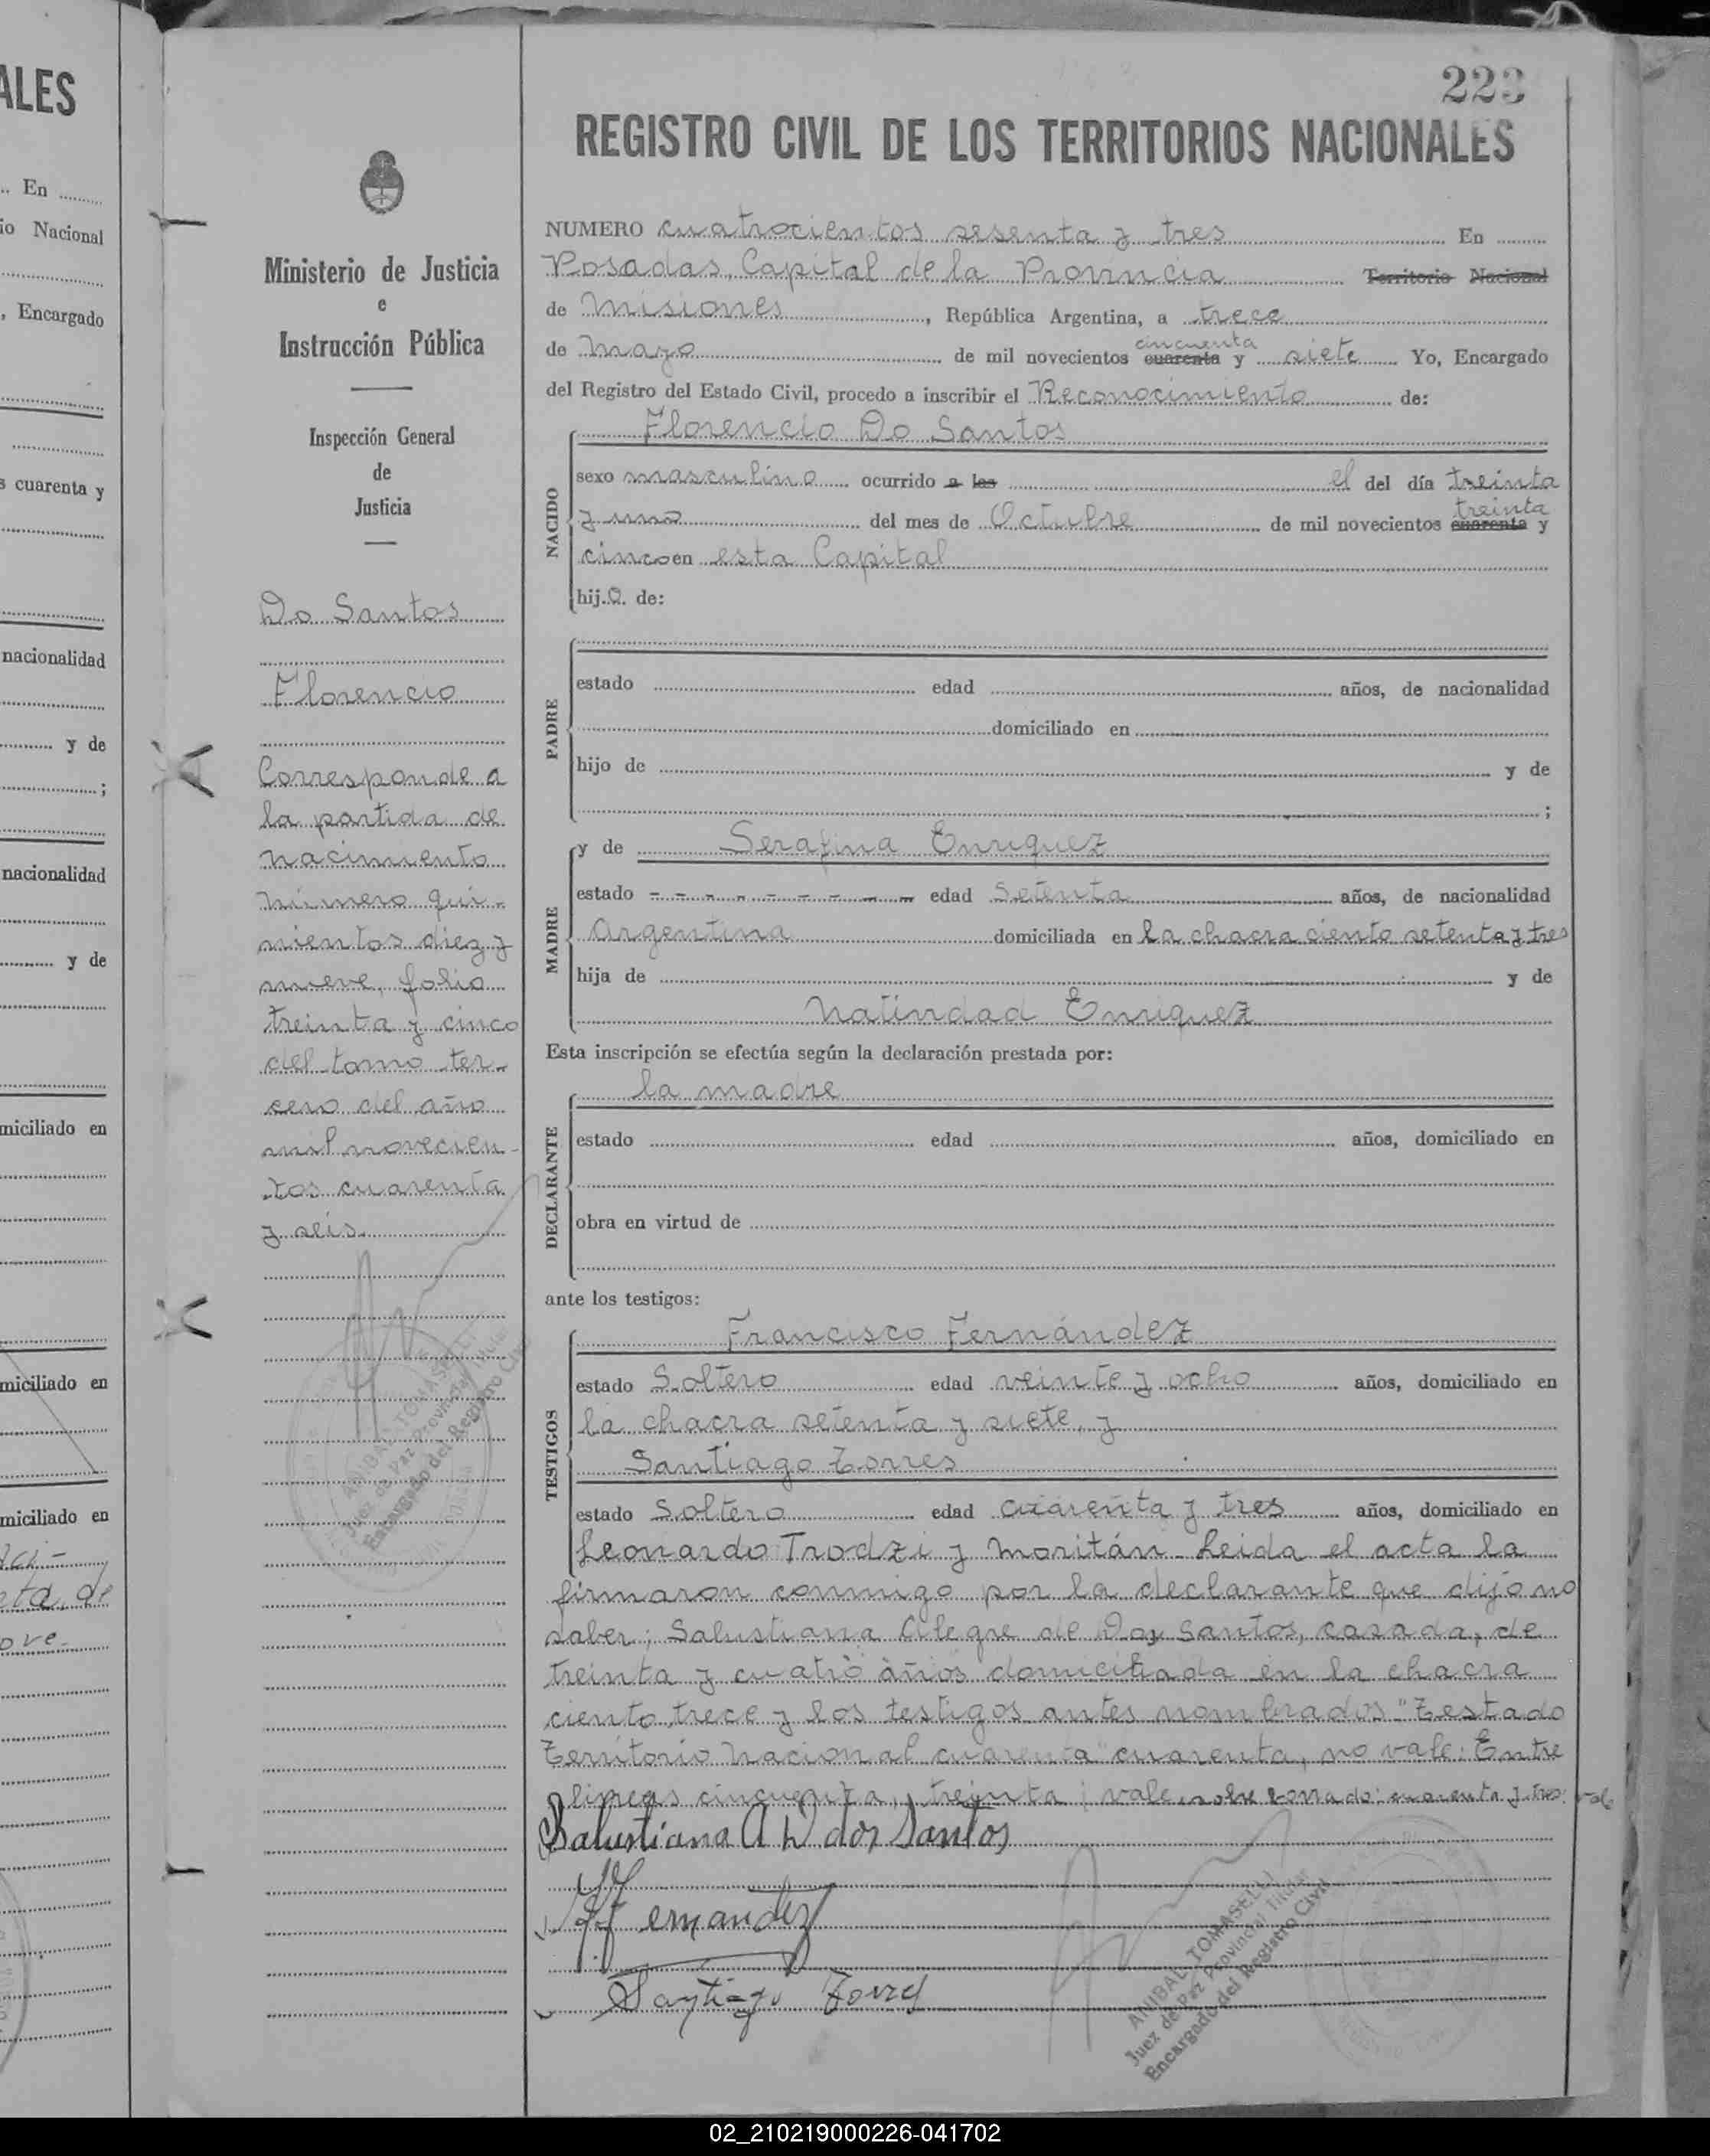 ALES
.. En
io Nacional
, Encargado
s cuarenta y
nacionalidad
y de
;
nacionalidad
y de
miciliado en
miciliado en
miciliado en
ove
Ministerio de Justicia
e
Instrucción Pública
Inspección General
de
Justicia
Do Santos
Florencio
Corresponde a
la partida de
nacimiento
número qui-
nientos diez y
nueve, folio
treinta y cinco
del tomo ter-
cero del año
mil novecien-
tos cuarenta
y seis.
ANIBAL TOMASELLI
Juez de Paz Provincial Titular
Encargado del Registro Civil
223
REGISTRO CIVIL DE LOS TERRITORIOS NACIONALES
NUMERO cuatrocientos sesenta y tres En
Posadas, Capital de la Provincia Territorio Nacional
de Misiones, República Argentina, a trece
cincuenta
de mayo de mil novecientos cuarenta y siete Yo, Encargado
del Registro del Estado Civil, procedo a inscribir el Reconocimiento de:
Florencio Do Santos
NACIDO
sexo masculino ocurrido a las el del día treinta
treinta
y uno del mes de Octubre de mil novecientos cuarenta y
cinco en esta Capital
hij.o. de:
PADRE
estado edad años, de nacionalidad
domiciliado en
hijo de y de
;
MADRE
y de Serafina Enriquez
estado edad Setenta años, de nacionalidad
Argentina domiciliada en la chacra ciento setenta y tres
hija de y de
Natividad Enriquez
Esta inscripción se efectúa según la declaración prestada por:
la madre
DECLARANTE
estado edad años, domiciliado en
obra en virtud de
ante los testigos:
TESTIGOS
Francisco Fernández
estado Soltero edad veinte y ocho años, domiciliado en
la chacra setenta y siete, y
Santiago Torres
estado Soltero edad cuarenta y tres años, domiciliado en
Leonardo Trodzi y Moritán - Leida el acta la
firmaron conmigo por la declarante que dijo no
saber; Salustiana de Dos Santos, casada, de
treinta y cuatro años domiciliada en la chacra
ciento trece y los testigos antes nombrados "Testado
Territorio Nacional cuarenta" cuarenta, no vale: Entre
lineas cincuenta, treinta; vale, sobre borrado: cuarenta y tres: vale
Salustiana A D dos Santos
Fernandez
Santiago Torres
ANIBAL TOMASELLI
Juez de Paz Provincial Titular
Encargado del Registro Civil
02_210219000226-041702